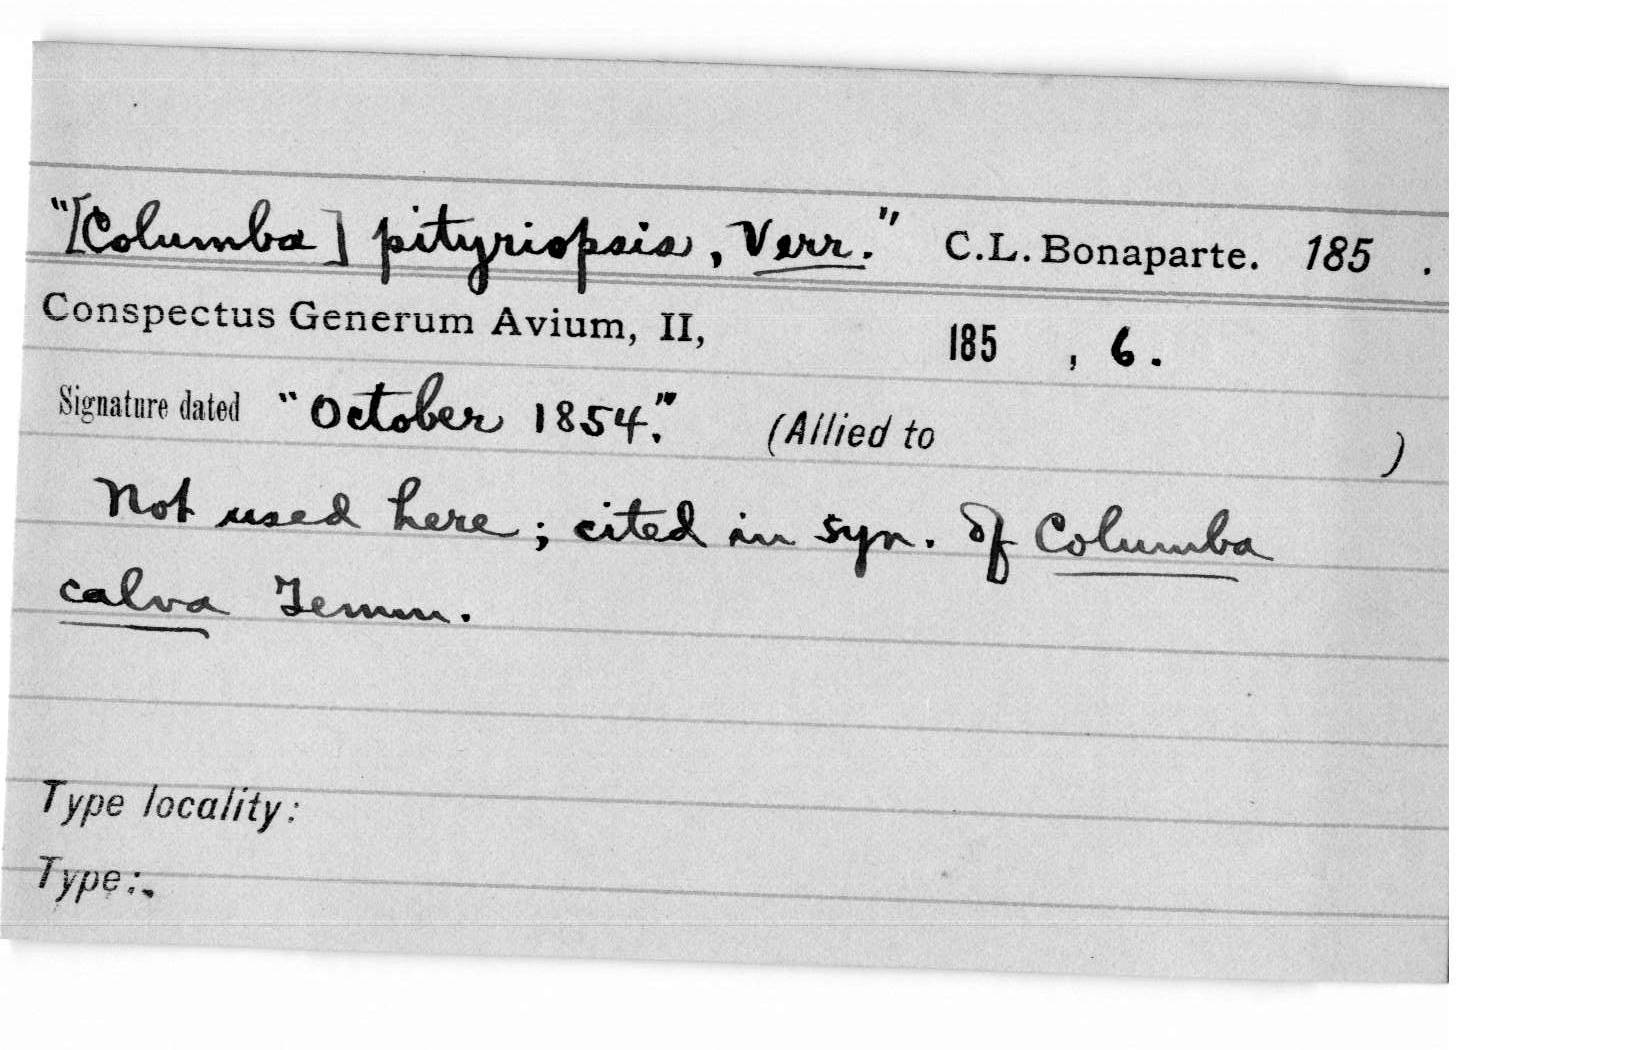 "[Columba] pityriopsis, Verr." C.L. Bonaparte. 185 .
Conspectus Generum Avium, II, 185 , 6.
Signature dated "October 1854." (Allied to )
Not used here; cited in syn. of Columba
calva Temm.
Type locality:
Type: